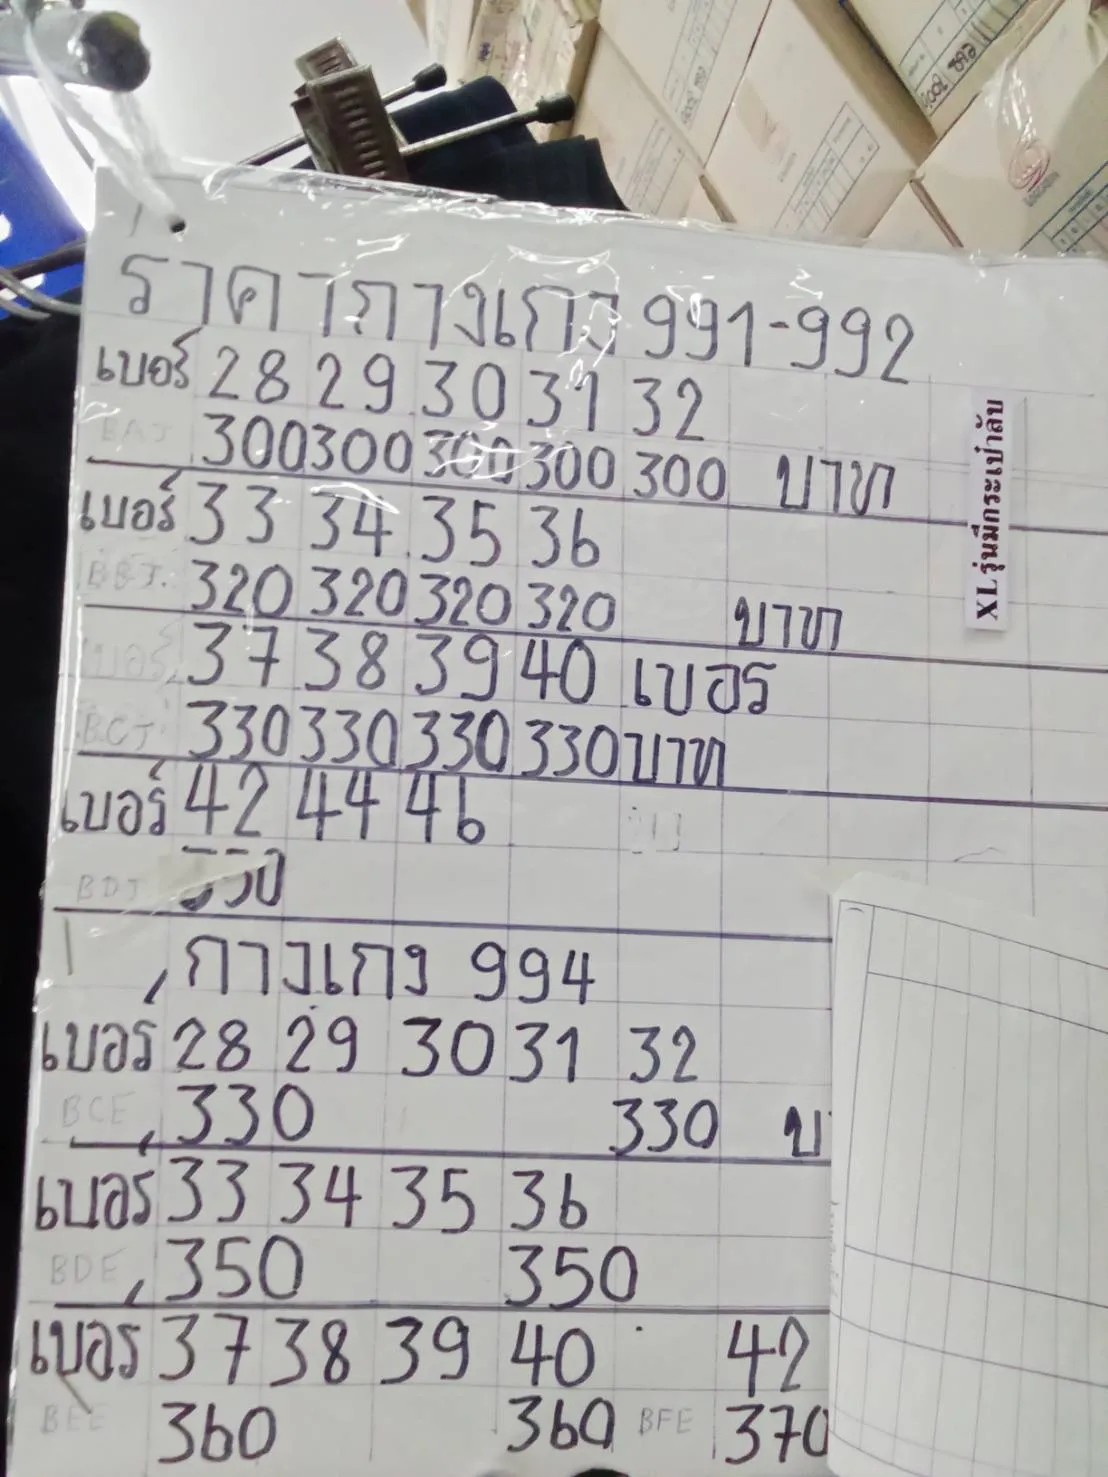 ราคากางเกง 991-992
เบอร์ 28 29 30 31 32
BAJ 300 300 300 300 300 บาท
XL รุ่นมีกระเป๋าลับ
เบอร์ 33 34 35 36
BBJ. 320 320 320 320 บาท
เบอร์ 37 38 39 40 เบอร
BCJ 330 330 330 330 บาท
เบอร์ 42 44 46
BDJ 350
กางเกง 994
เบอร์ 28 29 30 31 32
BCE 330 330
เบอร์ 33 34 35 36
BDE 350 350
เบอร 37 38 39 40 42
BEE 360 360 BFE 370